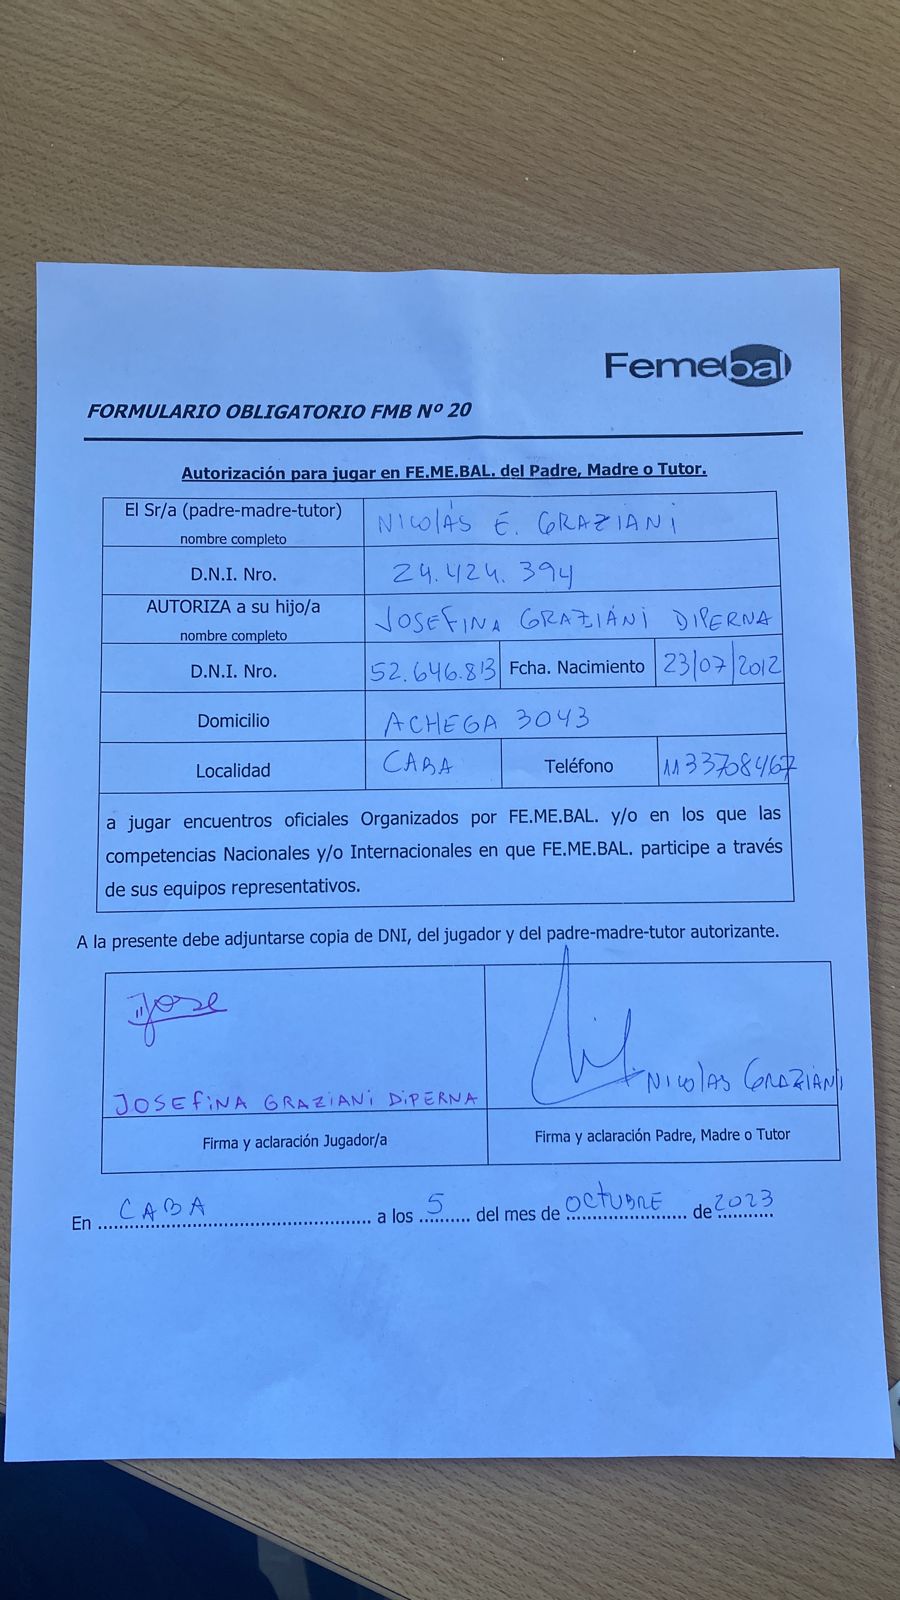 Femebal
FORMULARIO OBLIGATORIO FMB Nº 20
Autorización para jugar en FE.ME.BAL. del Padre, Madre o Tutor.
El Sr/a (padre-madre-tutor) nombre completo NICOLÁS E. GRAZIANI
D.N.I. Nro. 24.424.394
AUTORIZA a su hijo/a nombre completo JOSEFINA GRAZIANI DIPERNA
D.N.I. Nro. 52.646.813 Fcha. Nacimiento 23/07/2012
Domicilio ACHEGA 3043
Localidad CABA Teléfono 1133708467
a jugar encuentros oficiales Organizados por FE.ME.BAL. y/o en los que las
competencias Nacionales y/o Internacionales en que FE.ME.BAL. participe a través
de sus equipos representativos.
A la presente debe adjuntarse copia de DNI, del jugador y del padre-madre-tutor autorizante.
Jose
JOSEFINA GRAZIANI DIPERNA
NICOLAS GRAZIANI
Firma y aclaración Jugador/a
Firma y aclaración Padre, Madre o Tutor
En CABA a los 5 del mes de OCTUBRE de 2023